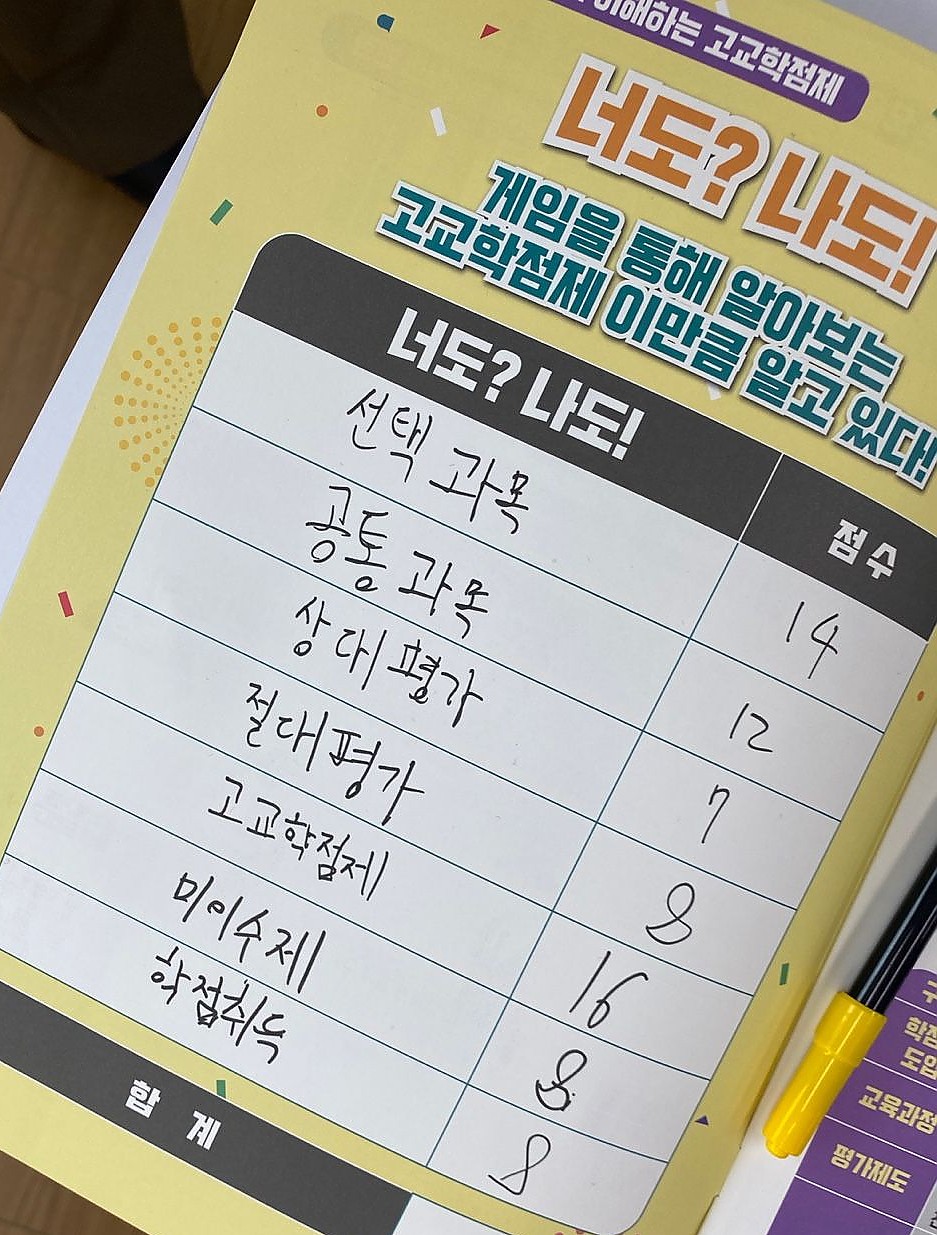 이해하는 고교학점제
너도? 나도!
게임을 통해 알아보는
고교학점제 이만큼 알고 있다!
너도? 나도! 점수
선택 과목 14
공통 과목 12
상대평가 7
절대평가 8
고교학점제 16
미이수제 8
학점취득 8
합 계
학점
도입
교육과정
평가제도